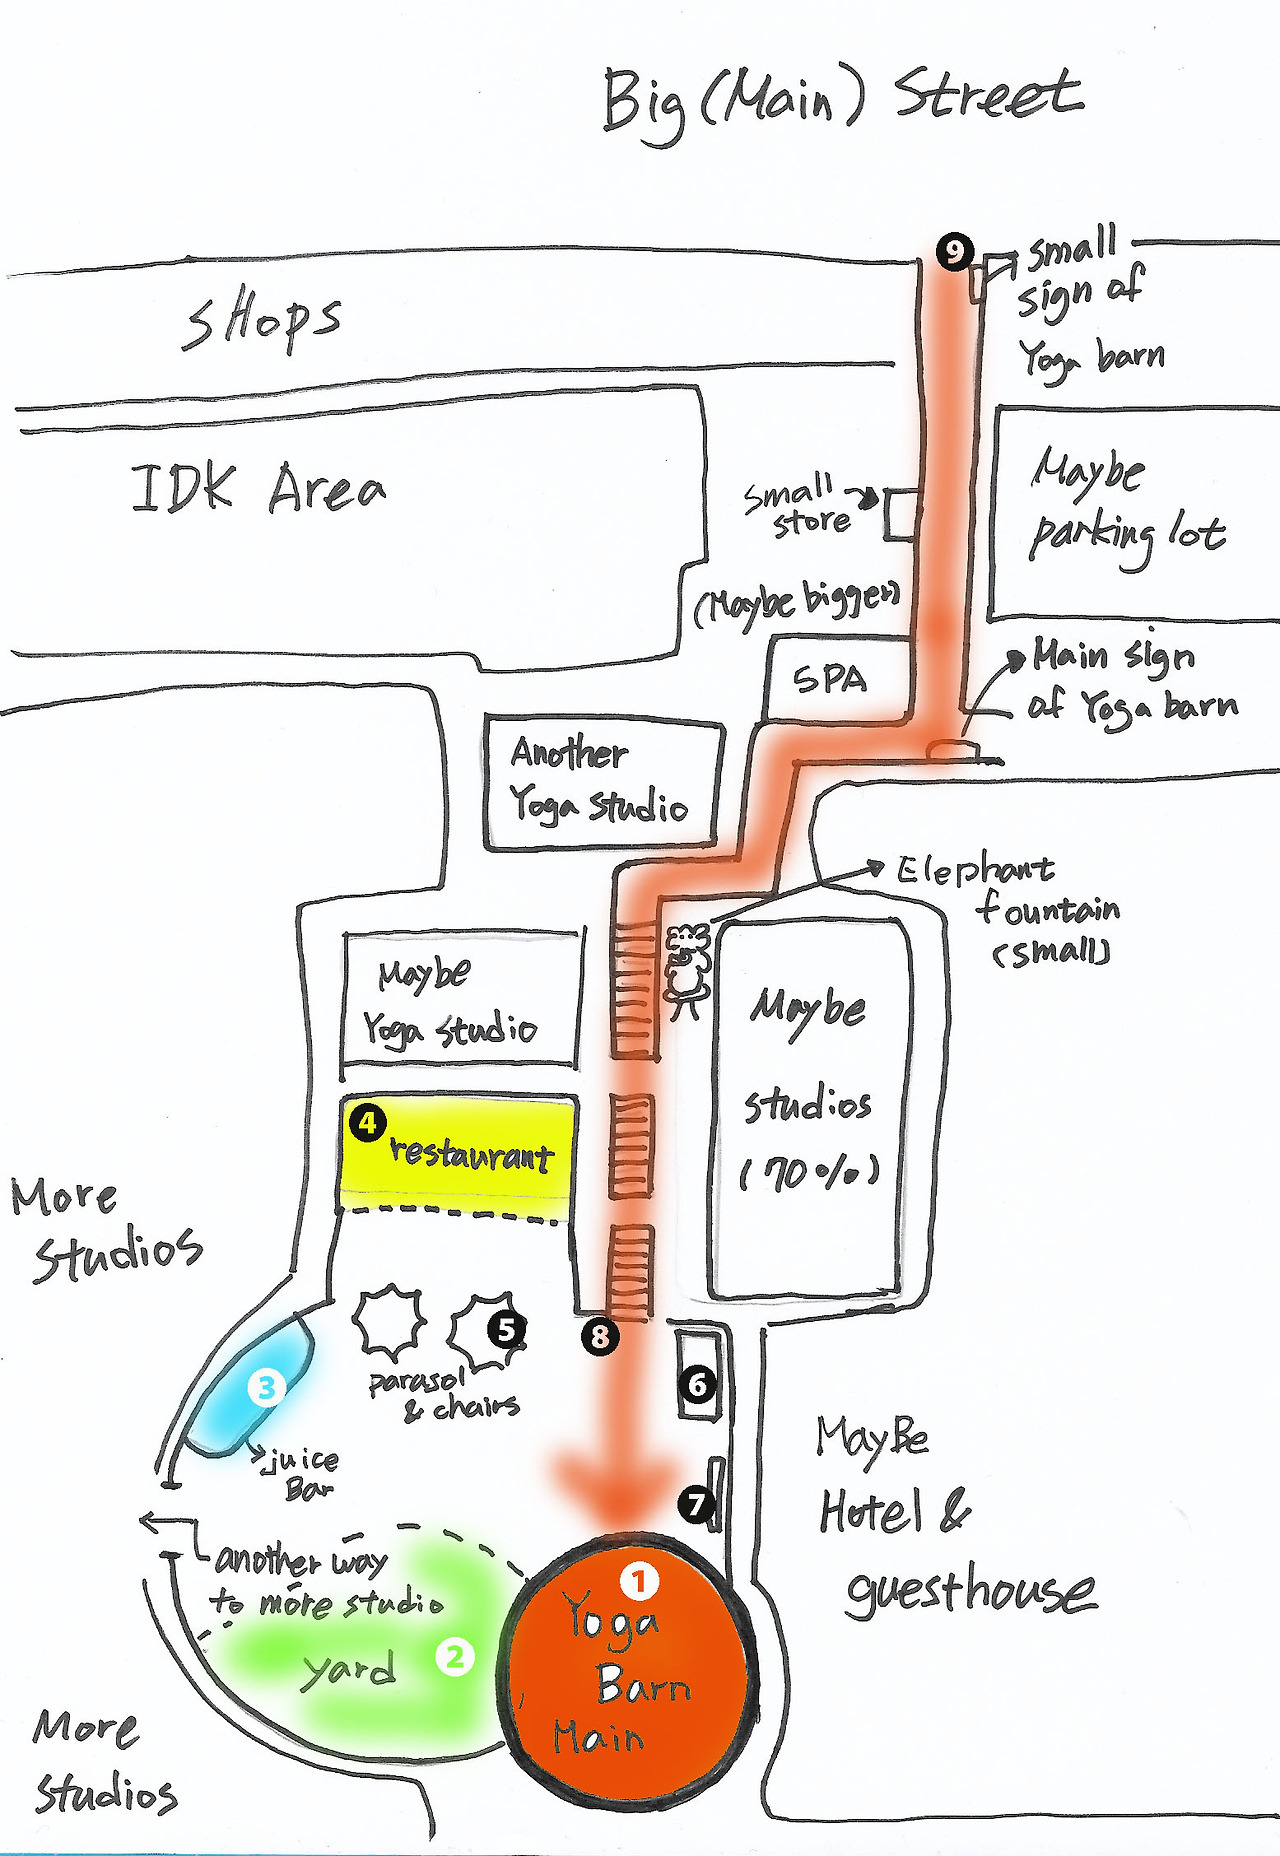 Big (Main) Street
9
small
sign of
Yoga barn
SHops
IDK Area
small
store
Maybe
parking lot
(Maybe bigger)
SPA
Main sign
of Yoga barn
Another
Yoga studio
Elephant
fountain
(small)
Maybe
Yoga studio
Maybe
studios
(70%)
4
restaurant
More
studios
5
8
6
parasol
& chairs
3
juice
Bar
7
MayBe
Hotel &
guesthouse
another way
to more studio
yard
2
1
Yoga
Barn
Main
More
studios